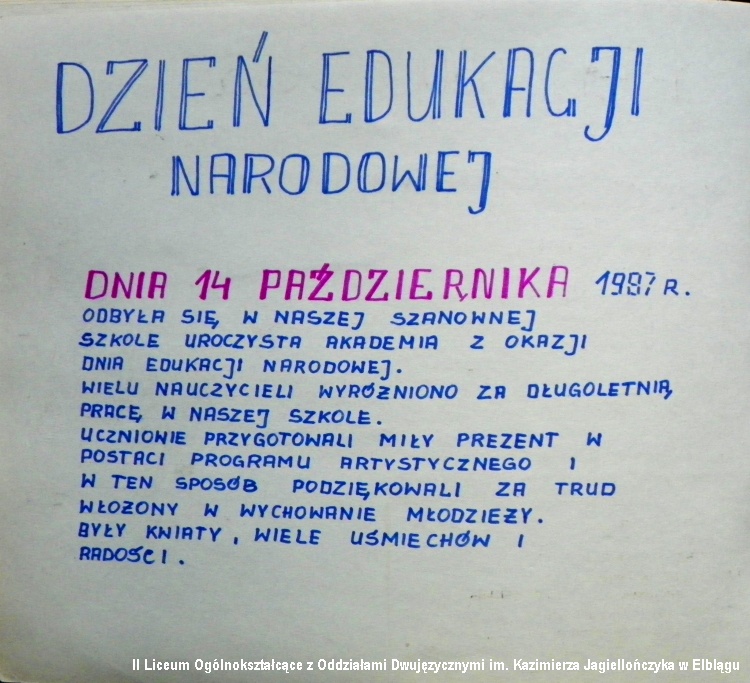 DZIEŃ EDUKACJI
NARODOWEJ
DNIA 14 PAŹDZIERNIKA 1987 R.
ODBYŁA SIĘ W NASZEJ SZANOWNEJ
SZKOLE UROCZYSTA AKADEMIA Z OKAZJI
DNIA EDUKACJI NARODOWEJ.
WIELU NAUCZYCIELI WYRÓŻNIONO ZA DŁUGOLETNIĄ
PRACĘ W NASZEJ SZKOLE.
UCZNIOWIE PRZYGOTOWALI MIŁY PREZENT W
POSTACI PROGRAMU ARTYSTYCZNEGO I
W TEN SPOSÓB PODZIĘKOWALI ZA TRUD
WŁOŻONY W WYCHOWANIE MŁODZIEŻY.
BYŁY KWIATY, WIELE UŚMIECHÓW I
RADOŚCI.
II Liceum Ogólnokształcące z Oddziałami Dwujęzycznymi im. Kazimierza Jagiellończyka w Elblągu